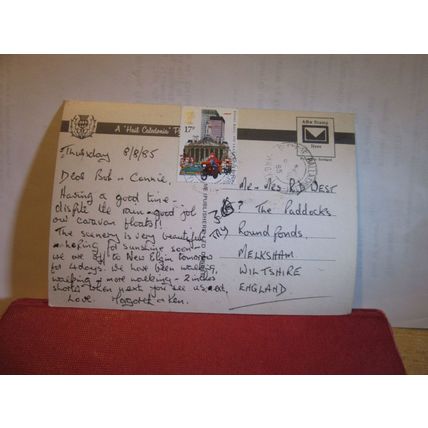 A 'Hail Caledonia' P
Affix Stamp
Here
17P
Thursday 8/8/85
Dear Bob + Connie,
Having a good time -
dispite the rain - good job
our caravan floats!!
The scenery is very beautiful
- hoping for sunshine soon -
we are off to New Elgin tomorrow
for 4 days. We have been walking,
walking + more walking - 2 inches
shorter when next you see us,
Love Margaret + Ken.
Mr + Mrs R.D. WEST
? The Paddocks
TRY Roundponds,
MELKSHAM
WILTSHIRE
ENGLAND